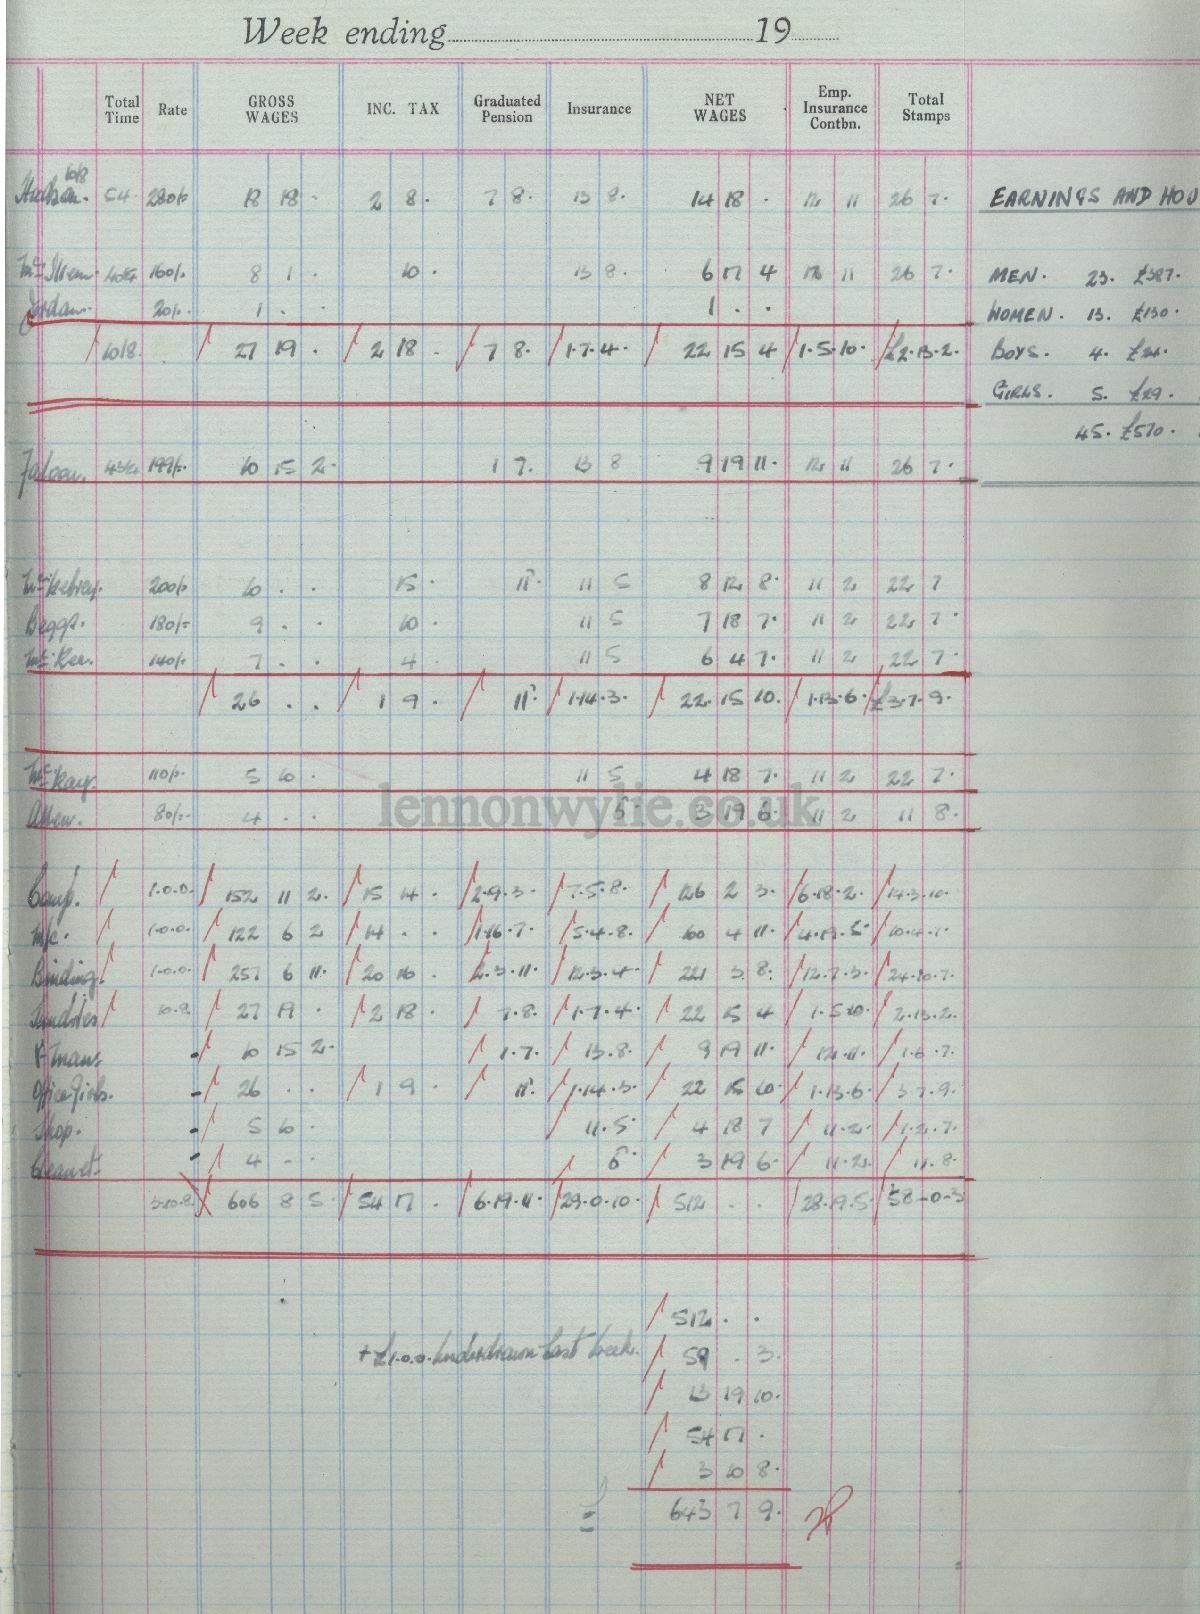 Week ending 19
Total Time Rate GROSS WAGES INC. TAX Graduated Pension Insurance NET WAGES Emp. Insurance Contbn. Total Stamps
10/8
54. 280/- 18 18 . 2 8 . 7 8. 13 8. 14 18 . 12 11 26 7. EARNINGS AND HOU
160/- 8 1 . 10 . 13 8. 6 17 4 12 11 26 7. MEN. 23. £387.
Jordan. 20/- 1 . . 1 . . WOMEN. 13. £130.
10/8. 27 19 . 2 18 . 7 8. 1.7.4. 22 15 4 1.5.10. £2.13.2. BOYS. 4. £24.
GIRLS. 5. £29.
45. £570.
199/- 10 15 2. 1 7. 13 8 9 19 11. 12 11 26 7.
200/- 10 . . 15 . 11. 11 5 8 12 8. 11 2 22 7
Beggs. 180/- 9 . . 10 . 11 5 7 18 7. 11 2 22 7.
McKee. 140/- 7 . . 4 . 11 5 6 4 7. 11 2 22 7.
26 . . 1 9 . 11. 1.14.3. 22 15 10. 1.13.6. £3.7.9.
McKay. 110/- 5 10 . 11 5 4 18 7. 11 2 22 7.
Allen. 80/- 4 . . 6 3 19 6. 11 2 11 8.
lennonwylie.co.uk
Comp. 1.0.0. 152 11 2. 15 14 . 2.9.3. 7.5.8. 126 2 3. 6.18.2. 14.3.10.
M/c. 1.0.0. 122 6 2 14 . . 1.16.7. 5.4.8. 4 11. 4.19.5. 10.4.1.
Binding. 1.0.0. 257 6 11. 20 16 . 2.3.11. 12.3.4. 221 3 8. 12.7.3. 24.10.7.
Sundries 10.8. 27 19 . 2 18 . 7.8. 1.7.4. 22 15 4 1.5.10. 2.13.2.
10 15 2. 1.7. 13.8. 9 19 11. 12.11. 1.6.7.
Office Girls. 26 . . 1 9 . 11. 1.14.3. 22 15 10 1.13.6. 3.7.9.
Shop. 5 10 . 11.5 4 18 7 11.2. 1.2.7.
Cleaner. 4 . . 6 3 19 6. 11.2. 11.8.
3.10.8. 606 8 5. 54 17 . 6.19.11. 29.0.10. 512 . . 28.19.5. 58-0-3
512 . .
+ £1.0.0. Underdrawn last week. 59 . 3.
13 19 10.
54 17 .
3 10 8.
643 7 9.